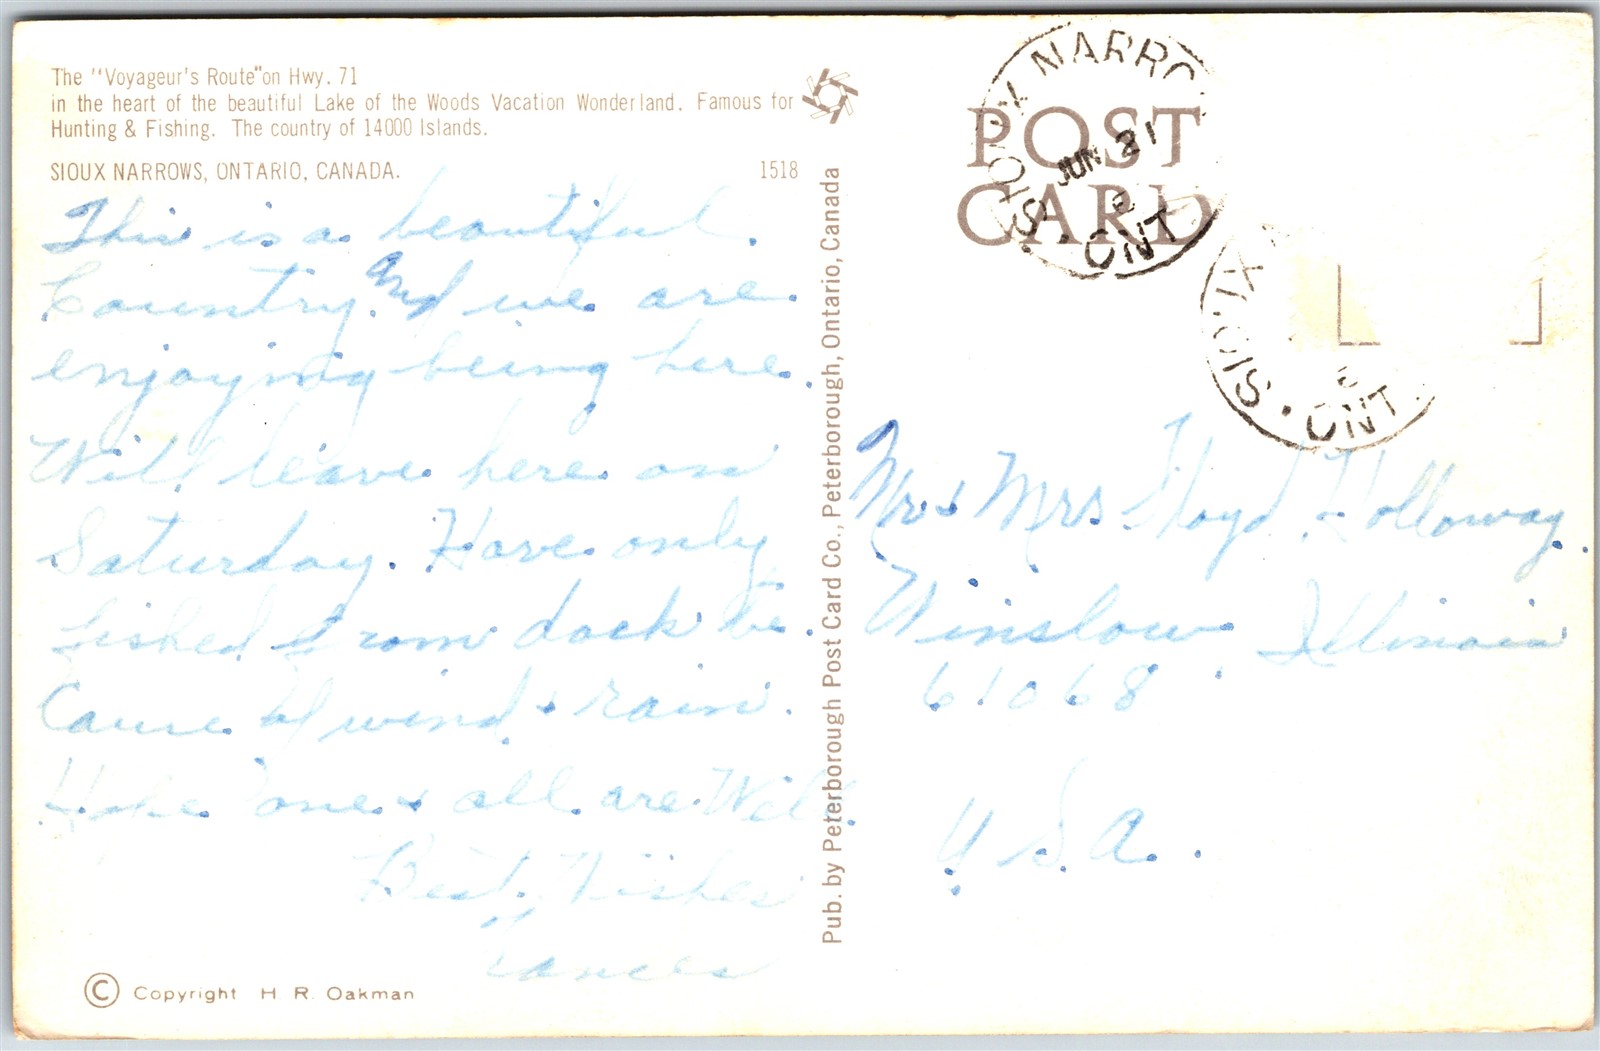 The "Voyageur's Route" on Hwy. 71
in the heart of the beautiful Lake of the Woods Vacation Wonderland. Famous for
Hunting & Fishing. The country of 14000 Islands.
SIOUX NARROWS, ONTARIO, CANADA.
1518
This is a beautiful
Country. And we are
enjoying being here.
Will leave here on
Saturday. Have only
fished from dock be
Cause of wind & rain.
Hope one & all are Well.
Best Wishes
Pub. by Peterborough Post Card Co., Peterborough, Ontario, Canada
© Copyright H. R. Oakman
POST
CARD
SIOUX NARRO
JUN 21
ONT.
SIOUX
ONT.
Mr & Mrs Floyd Holloway.
Winslow Illinois
61068
USA.